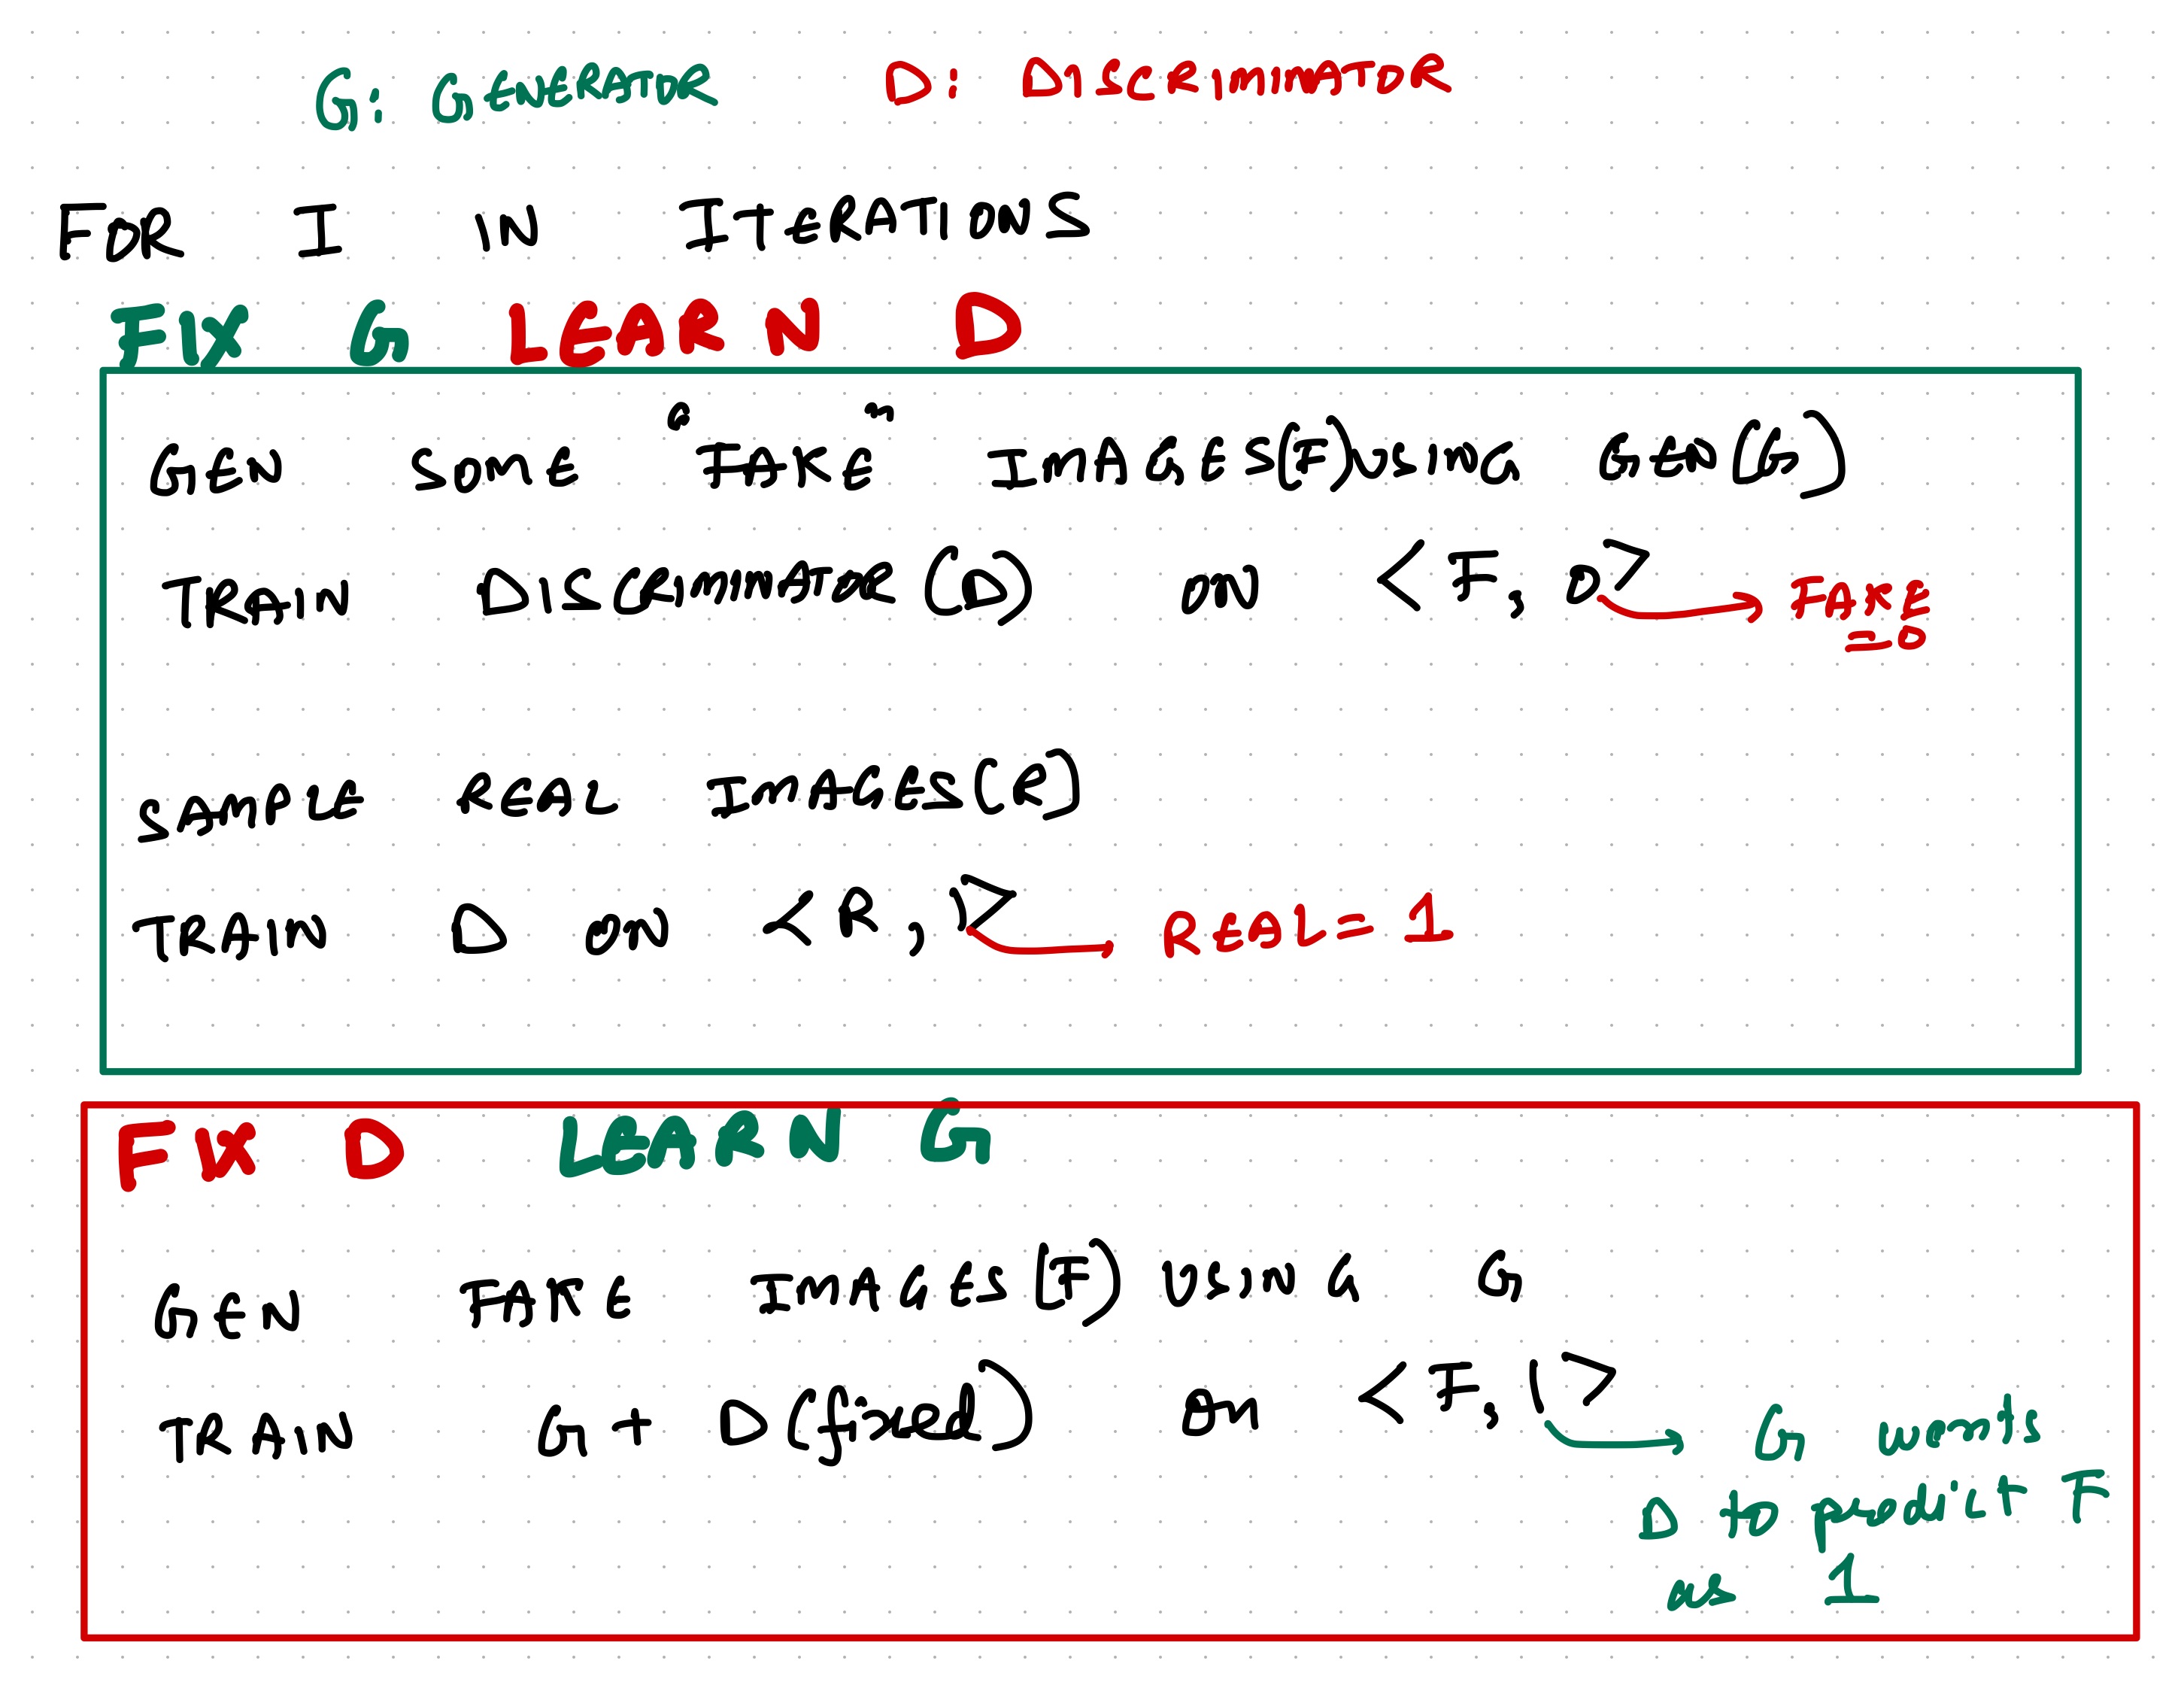 G: GENERATOR D: DISCRIMINATOR
FOR I IN ITERATIONS
FIX G LEARN D
GEN SOME "FAKE" IMAGES(F) USING GEN(G)
TRAIN DISCRIMINATOR (D) ON <F, 0> FAKE
=0
SAMPLE REAL IMAGES(R)
TRAIN D ON <R, 1> REAL = 1
FIX D LEARN G
GEN FAKE IMAGES(F) USING G
TRAIN G + D(fixed) on <F, 1> G wants
D to predict F
as 1